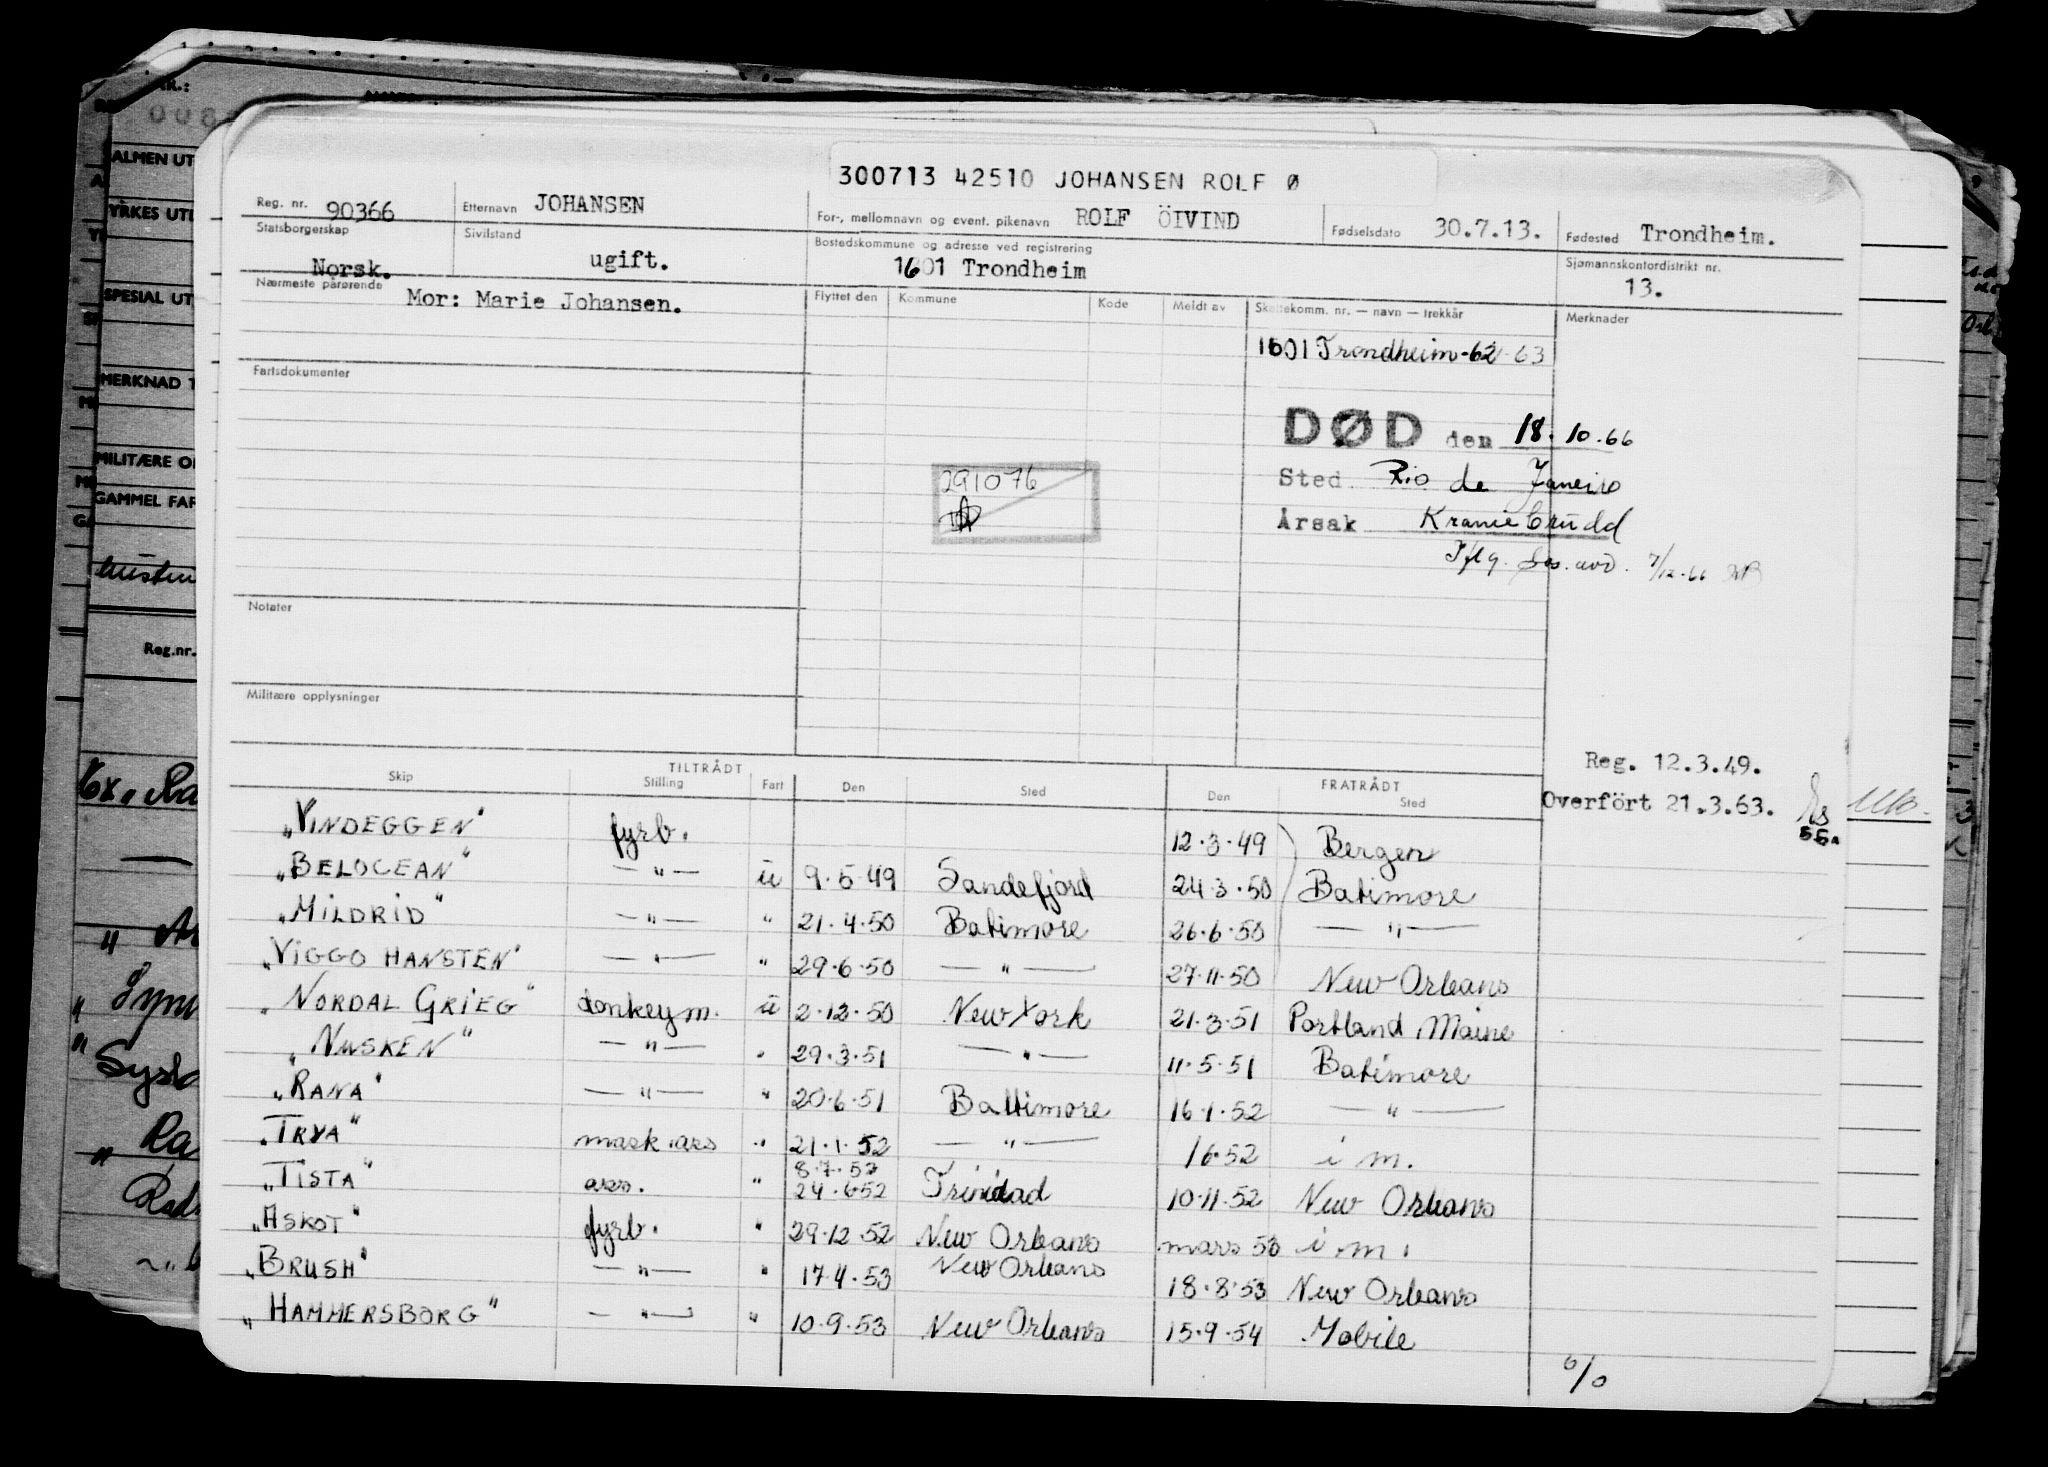 300713 42510 JOHANSEN ROLF Ø
Reg. nr. 90366 Etternavn JOHANSEN For-, mellomnavn og event. pikenavn ROLF ÖIVIND Fødselsdato 30.7.13. Fødested Trondheim.
Statsborgerskap Norsk. Sivilstand ugift. Bostedskommune og adresse ved registrering 1601 Trondheim Sjømannskontordistrikt nr. 13.
Nærmeste pårørende Mor: Marie Johansen. Flyttet den Kommune Kode Meldt av Skattekomm. nr. — navn — trekkår Merknader
1601 Trondheim-62-63
Fartsdokumenter
DØD den 18.10.66
291076
Sted Rio de Janeiro
Årsak Kraniebrudd
Iflg. Sos. avd. 7/12-66
Notater
Militære opplysninger
Reg. 12.3.49.
Overfört 21.3.63.
TILTRÅDT FRATRÅDT
Skip Stilling Fart Den Sted Den Sted
"VINDEGGEN" fyrb. 12.3.49 Bergen
"BELOCEAN" —"— u 9.5.49 Sandefjord 24.3.50 Batimore
"MILDRID" —"— " 21.4.50 Batimore 26.6.50 —"—
"VIGGO HANSTEN" —"— " 29.6.50 —"— 27.11.50 New Orleans
"NORDAL GRIEG" donkeym. u 2.12.50 New York 21.3.51 Portland Maine
"NUSKEN" —"— " 29.3.51 —"— 11.5.51 Batimore
"RANA" —"— " 20.6.51 Baltimore 16.1.52 —"—
"TRYA" mask.ass " 21.1.52 —"— 1652 i m.
8.7.52
"TISTA" ass. " 24.652 Trinidad 10.11.52 New Orleans
"ASKOT" fyrb. " 29.12.52 New Orleans mars 53 i m.
"BRUSH" —"— " 17.4.53 New Orleans 18.8.53 New Orleans
"HAMMERSBORG" —"— " 10.9.53 New Orleans 15.9.54 Mobile
ALMEN UT
YRKES UT
SPESIAL UT
MERKNAD T
MILITÆRE O
GAMMEL FAR
Reg.nr.